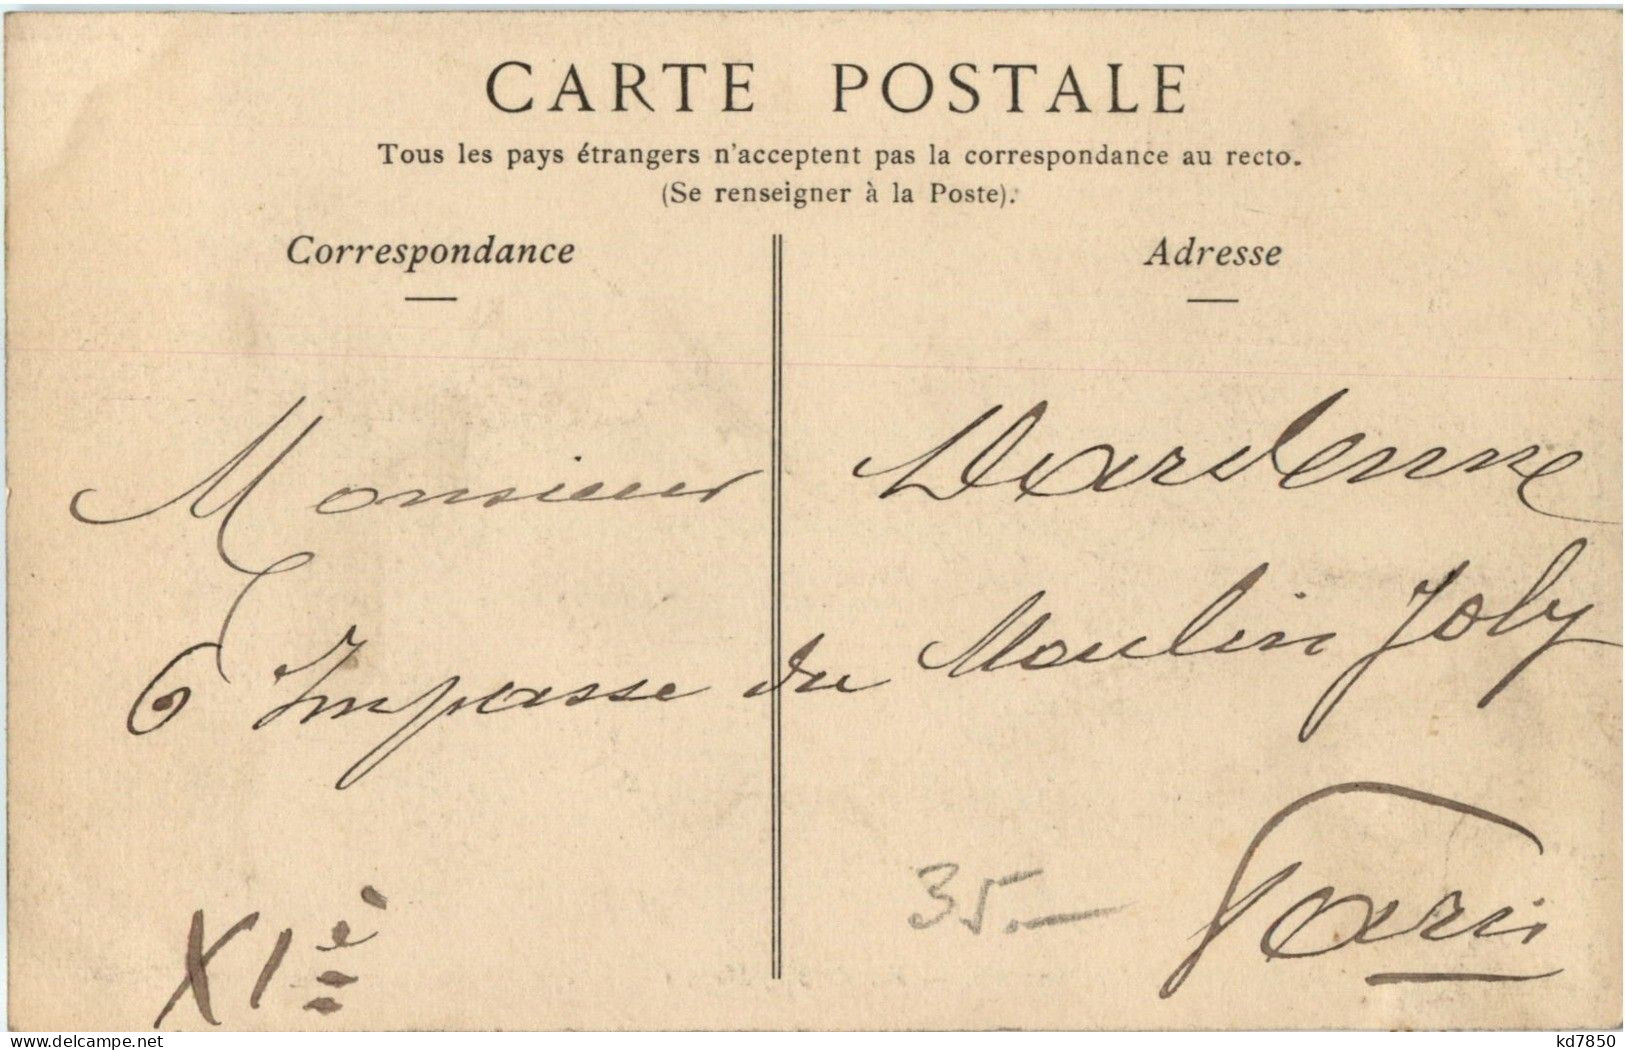 CARTE POSTALE
Tous les pays étrangers n'acceptent pas la correspondance au recto.
(Se renseigner à la Poste).
Correspondance
Adresse
Monsieur Dardenne
6 Impasse du Moulin Joly
Paris
XIè
35.—
delcampe.net
kd7850